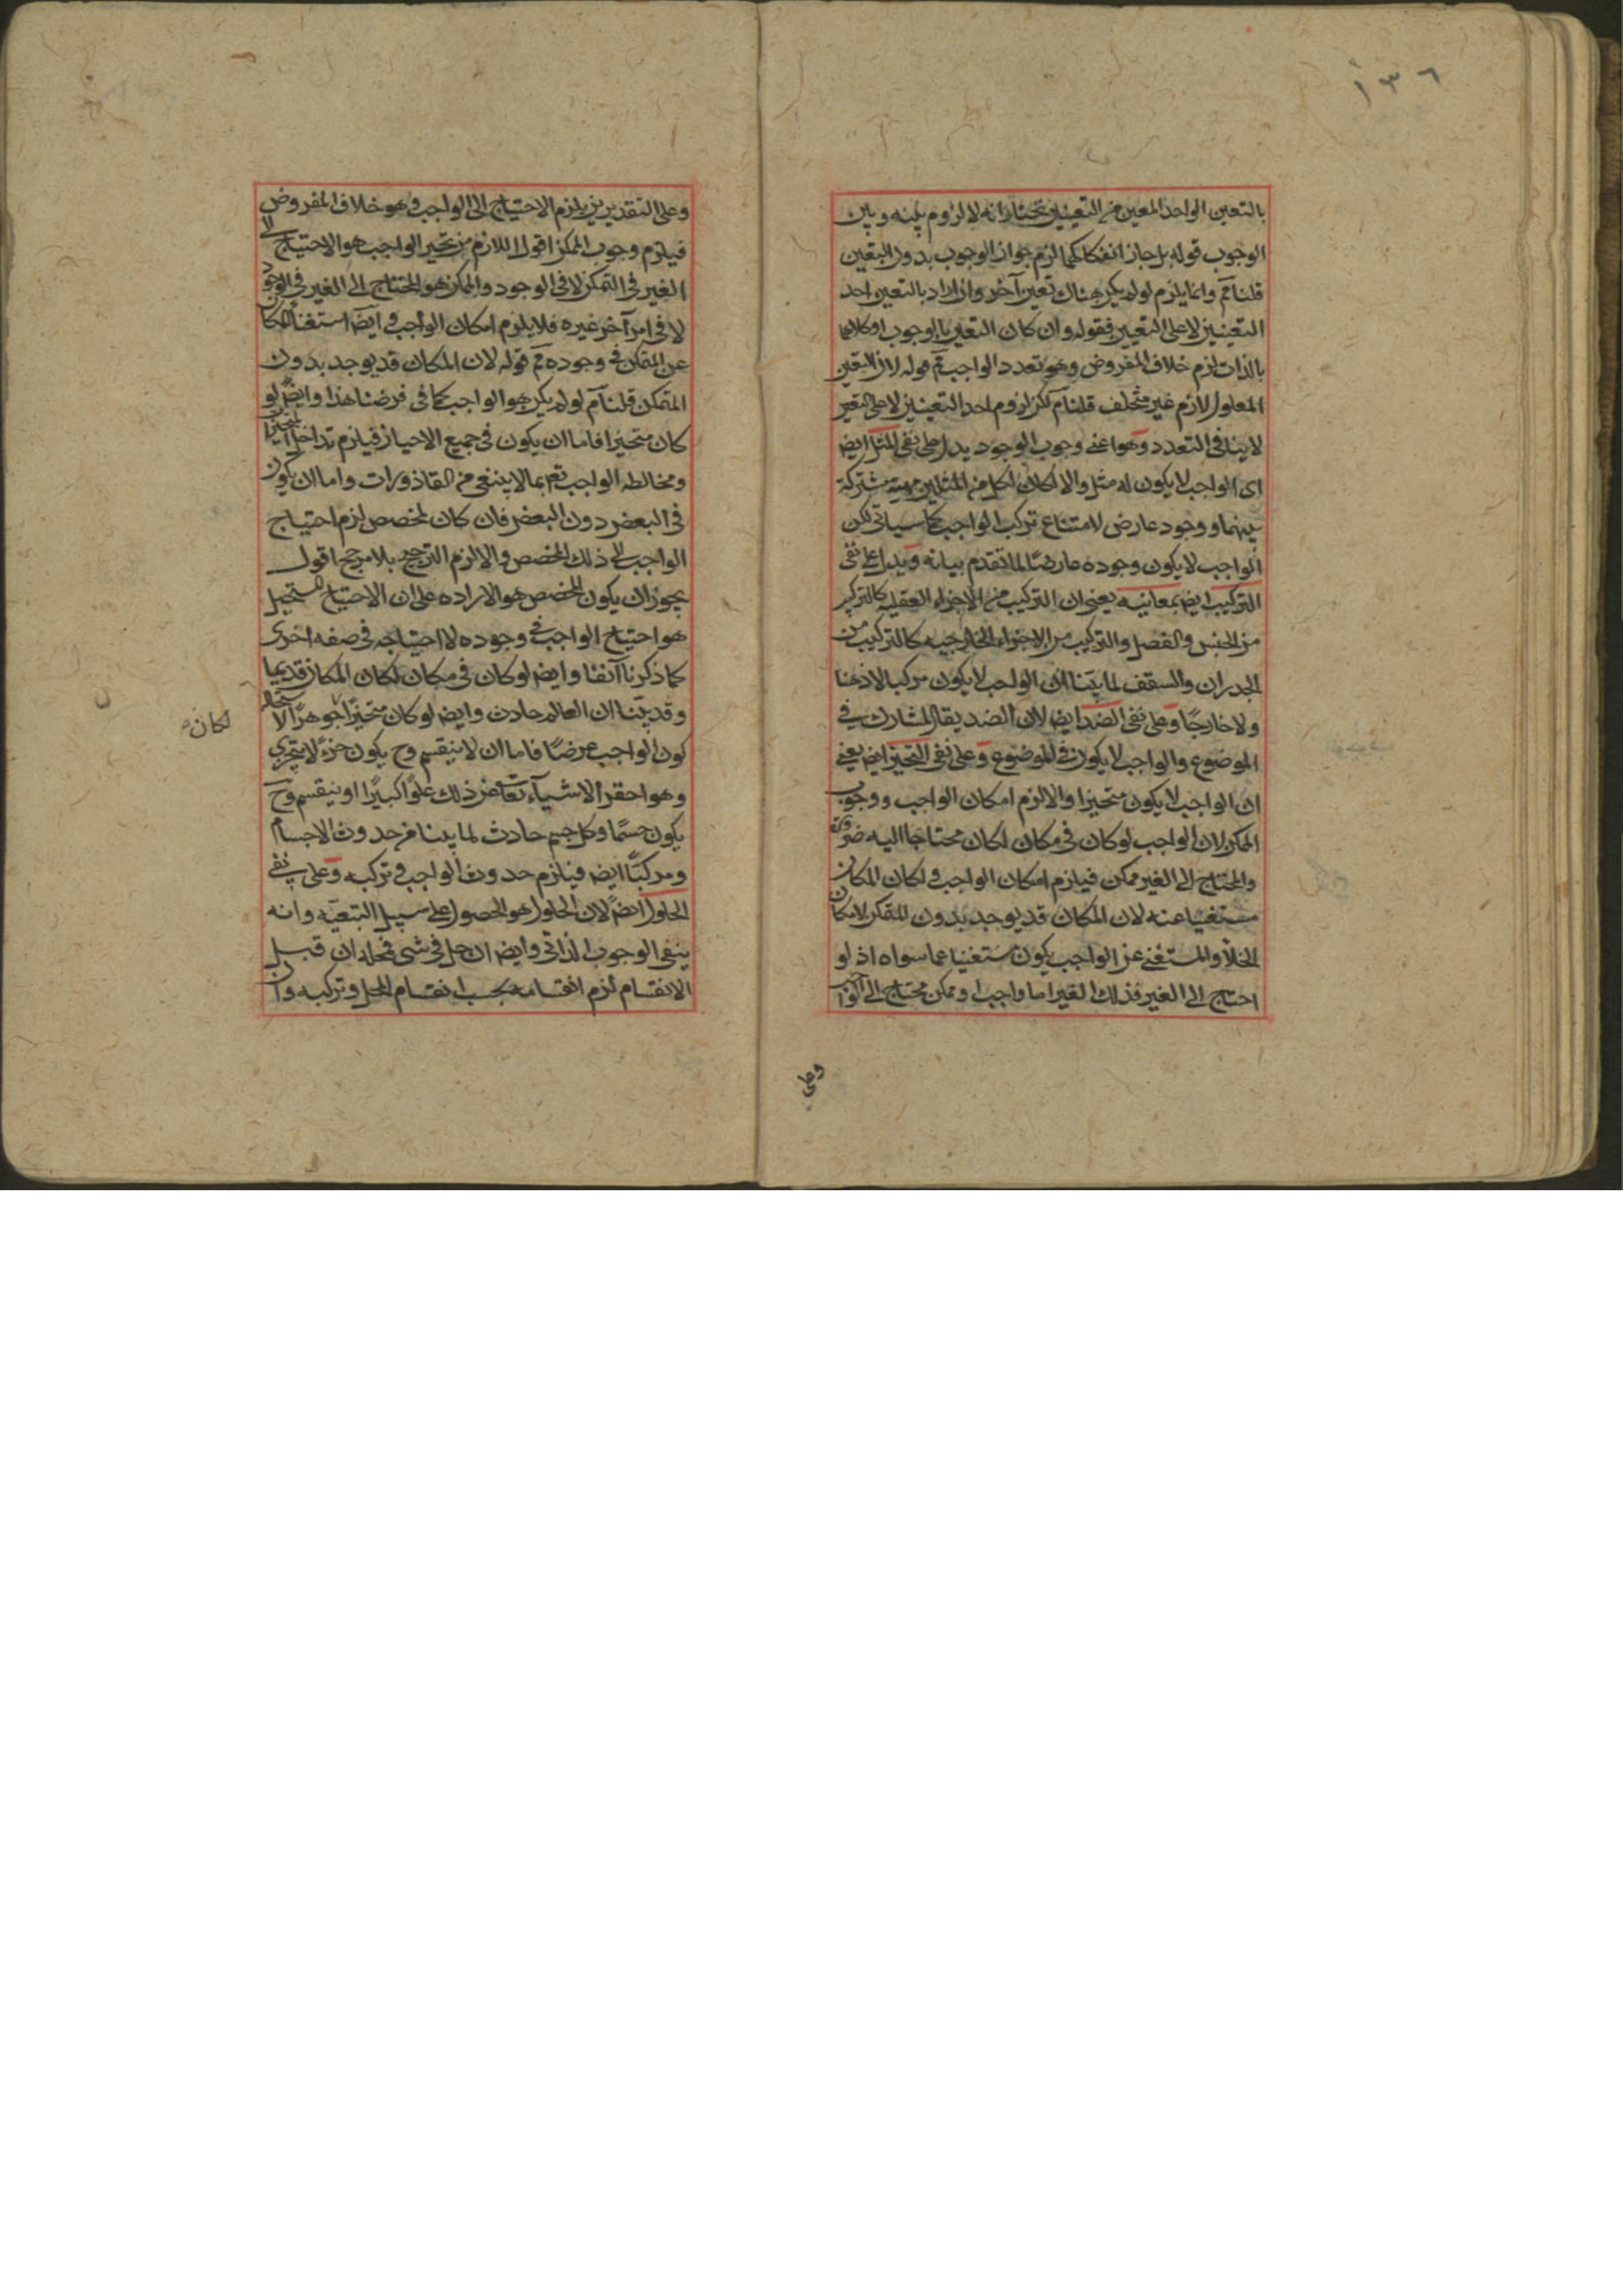 ١٣٦
بالتعين الواحد المعين من التعينين نختار انه لا لزوم بينه وبين
الوجوب قوله بل جاز انفكاكهما لزم جواز الوجوب بدون التعين
قلنا مم وانما يلزم لو لم يكن هناك تعين آخر وان اراد بالتعين احد
التعينين لا على التعيين فقوله وان كان التعين بالوجوب او كلاهما
بالذات لزم خلاف المفروض وهو تعدد الواجب مم قوله لان التعين
المعلول لازم غير متخلف قلنا مم لكن لزوم احد التعينين لا على التعين
لا ينافى التعدد وهو اعنى وجوب الوجود يدل على نفى المثل ايض
اى الواجب لا يكون له مثل والا لكان لكل من المثلين مهية مشتركة
بينهما ووجود عارض لامتناع تركب الواجب كما سياتى لكن
الواجب لا يكون وجوده عارضًا لما تقدم بيانه ويدل على نفى
التركيب ايض بمعانيه يعنى ان التركيب من الاجزاء العقلية كالتركيب
من الجنس والفصل والتركيب من الاجزاء الخارجيه كالتركيب من
الجدران والسقف لما بينا ان الواجب لا يكون مركبا لا ذهنا
ولا خارجًا وعلى نفى الضد ايض لان الضد يقال للمشارك فى
الموضوع والواجب لا يكون فى الموضوع وعلى نفى التحيز ايض يعنى
ان الواجب لا يكون متحيزا والا لزم امكان الواجب ووجوب
الممكن لان الواجب لو كان فى مكان لكان محتاجا اليه ضرورة
والمحتاج الى الغير ممكن فيلزم امكان الواجب ولكان المكان
مستغنيا عنه لان المكان قد يوجد بدون المتمكن لامكان
الخلأ والمستغنى عن الواجب يكون مستغنيا عما سواه اذ لو
احتاج الى الغير فذلك الغير اما واجب او ممكن محتاج الى الواجب
وعلى
وعلى التقديرين يلزم الاحتياج الى الواجب وهو خلاف المفروض
فيلزم وجوب الممكن اقول اللازم من تحيز الواجب هو الاحتياج الى
الغير فى التمكن لا فى الوجود والممكن هو المحتاج الى الغير فى الوجود
لا فى امر آخر غيره فلا يلزم امكان الواجب و ايض استغناء المكان
عن المتمكن فى وجوده مم قوله لان المكان قد يوجد بدون
المتمكن قلنا مم لو لم يكن هو الواجب كما فى فرضنا هذا وايض لو
كان متحيزا فاما ان يكون فى جميع الاحياز فيلزم تداخل المتحيزات
ومخالطه الواجب تع بما لا ينبغى من القاذورات واما ان يكون
فى البعض دون البعض فان كان لمخصص لزم احتياج
الواجب الى ذلك المخصص والا لزم الترجيح بلا مرجح اقول
يجوز ان يكون المخصص هو الاراده على ان الاحتياج المستحيل
هو احتياج الواجب فى وجوده لا احتياجه فى صفه اخرى
كما ذكرنا آنفا وايض لو كان فى مكان لكان المكان قديما
وقد بينا ان العالم حادث وايض لو كان متحيزًا جوهرًا لاستحالة
كون الواجب عرضًا فاما ان لا ينقسم وح يكون جزءً لا يتجزى
وهو احقر الاشيآء تعالى عن ذلك علوًا كبيرًا او ينقسم وح
يكون جسمًا وكل جسم حادث لما بينا من حدوث الاجسام
ومركبًا ايض فيلزم حدوث الواجب وتركبه وعلى نفى
الحلول ايضً لان الحلول هو الحصول على سبيل التبعيّه وانه
ينفى الوجوب الذاتى وايض ان حل فى شى فمحله ان قبل
الانقسام لزم انقسامه بحسب انقسام المحل وتركبه وان
لكان